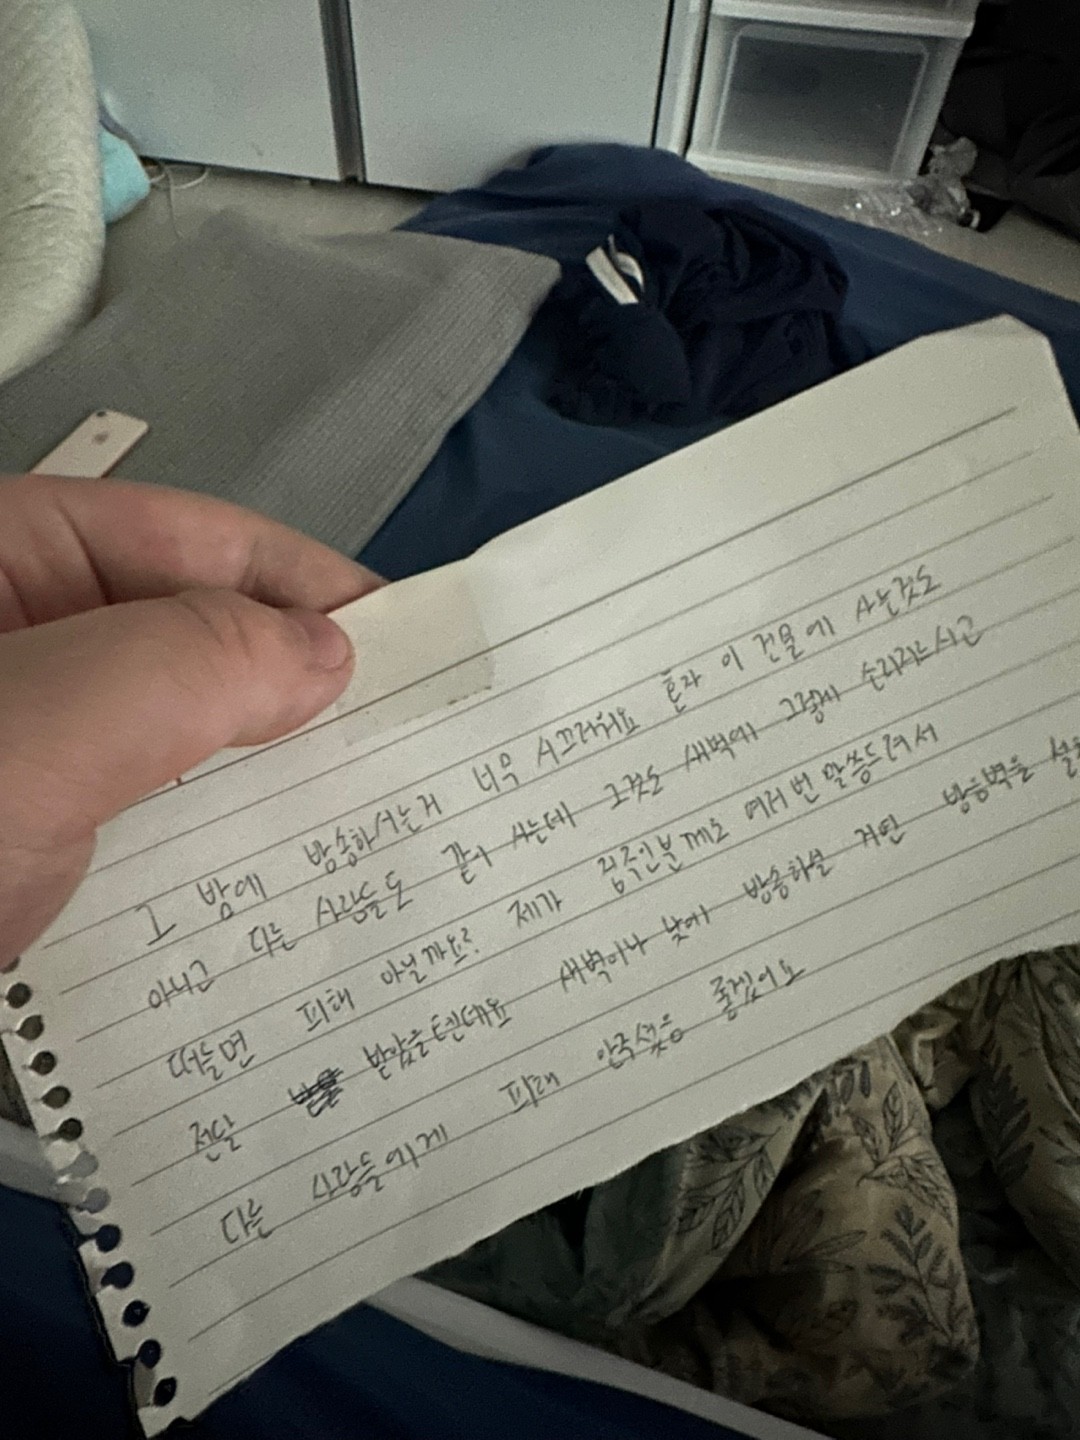 그 밤에 방송하시는거 너무 시끄러워요 혼자 이 건물에 사는것도
아니고 다른 사람들도 같이 사는데 그것도 새벽에 그렇게 소리지르시고
떠들면 피해 아닐까요? 제가 집주인분께도 여러번 말씀드려서
전달 받았을텐데요 새벽이나 낮에 방송하실 거면 방음벽을
다른 사람들에게 피해 안주셨음 좋겠어요